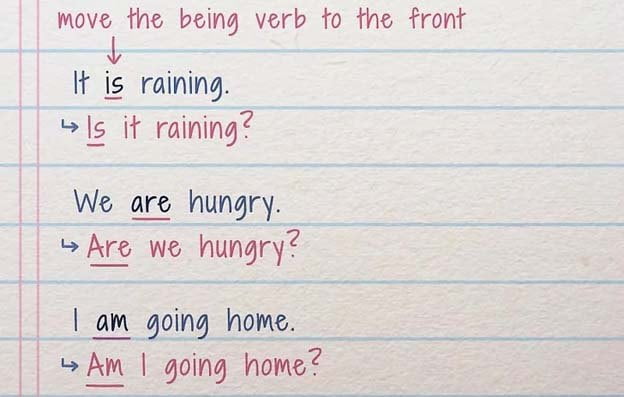 move the being verb to the front
It is raining.
Is it raining?
We are hungry.
Are we hungry?
I am going home.
Am I going home?